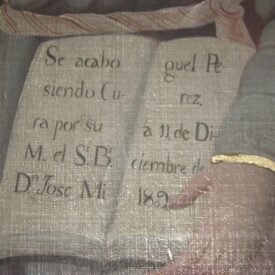 Se acabo
siendo Cu-
ra por su
M. el Sr. Br.
Dn. Jose Mi
guel Pe
rez,
á 11 de Di
ciembre de